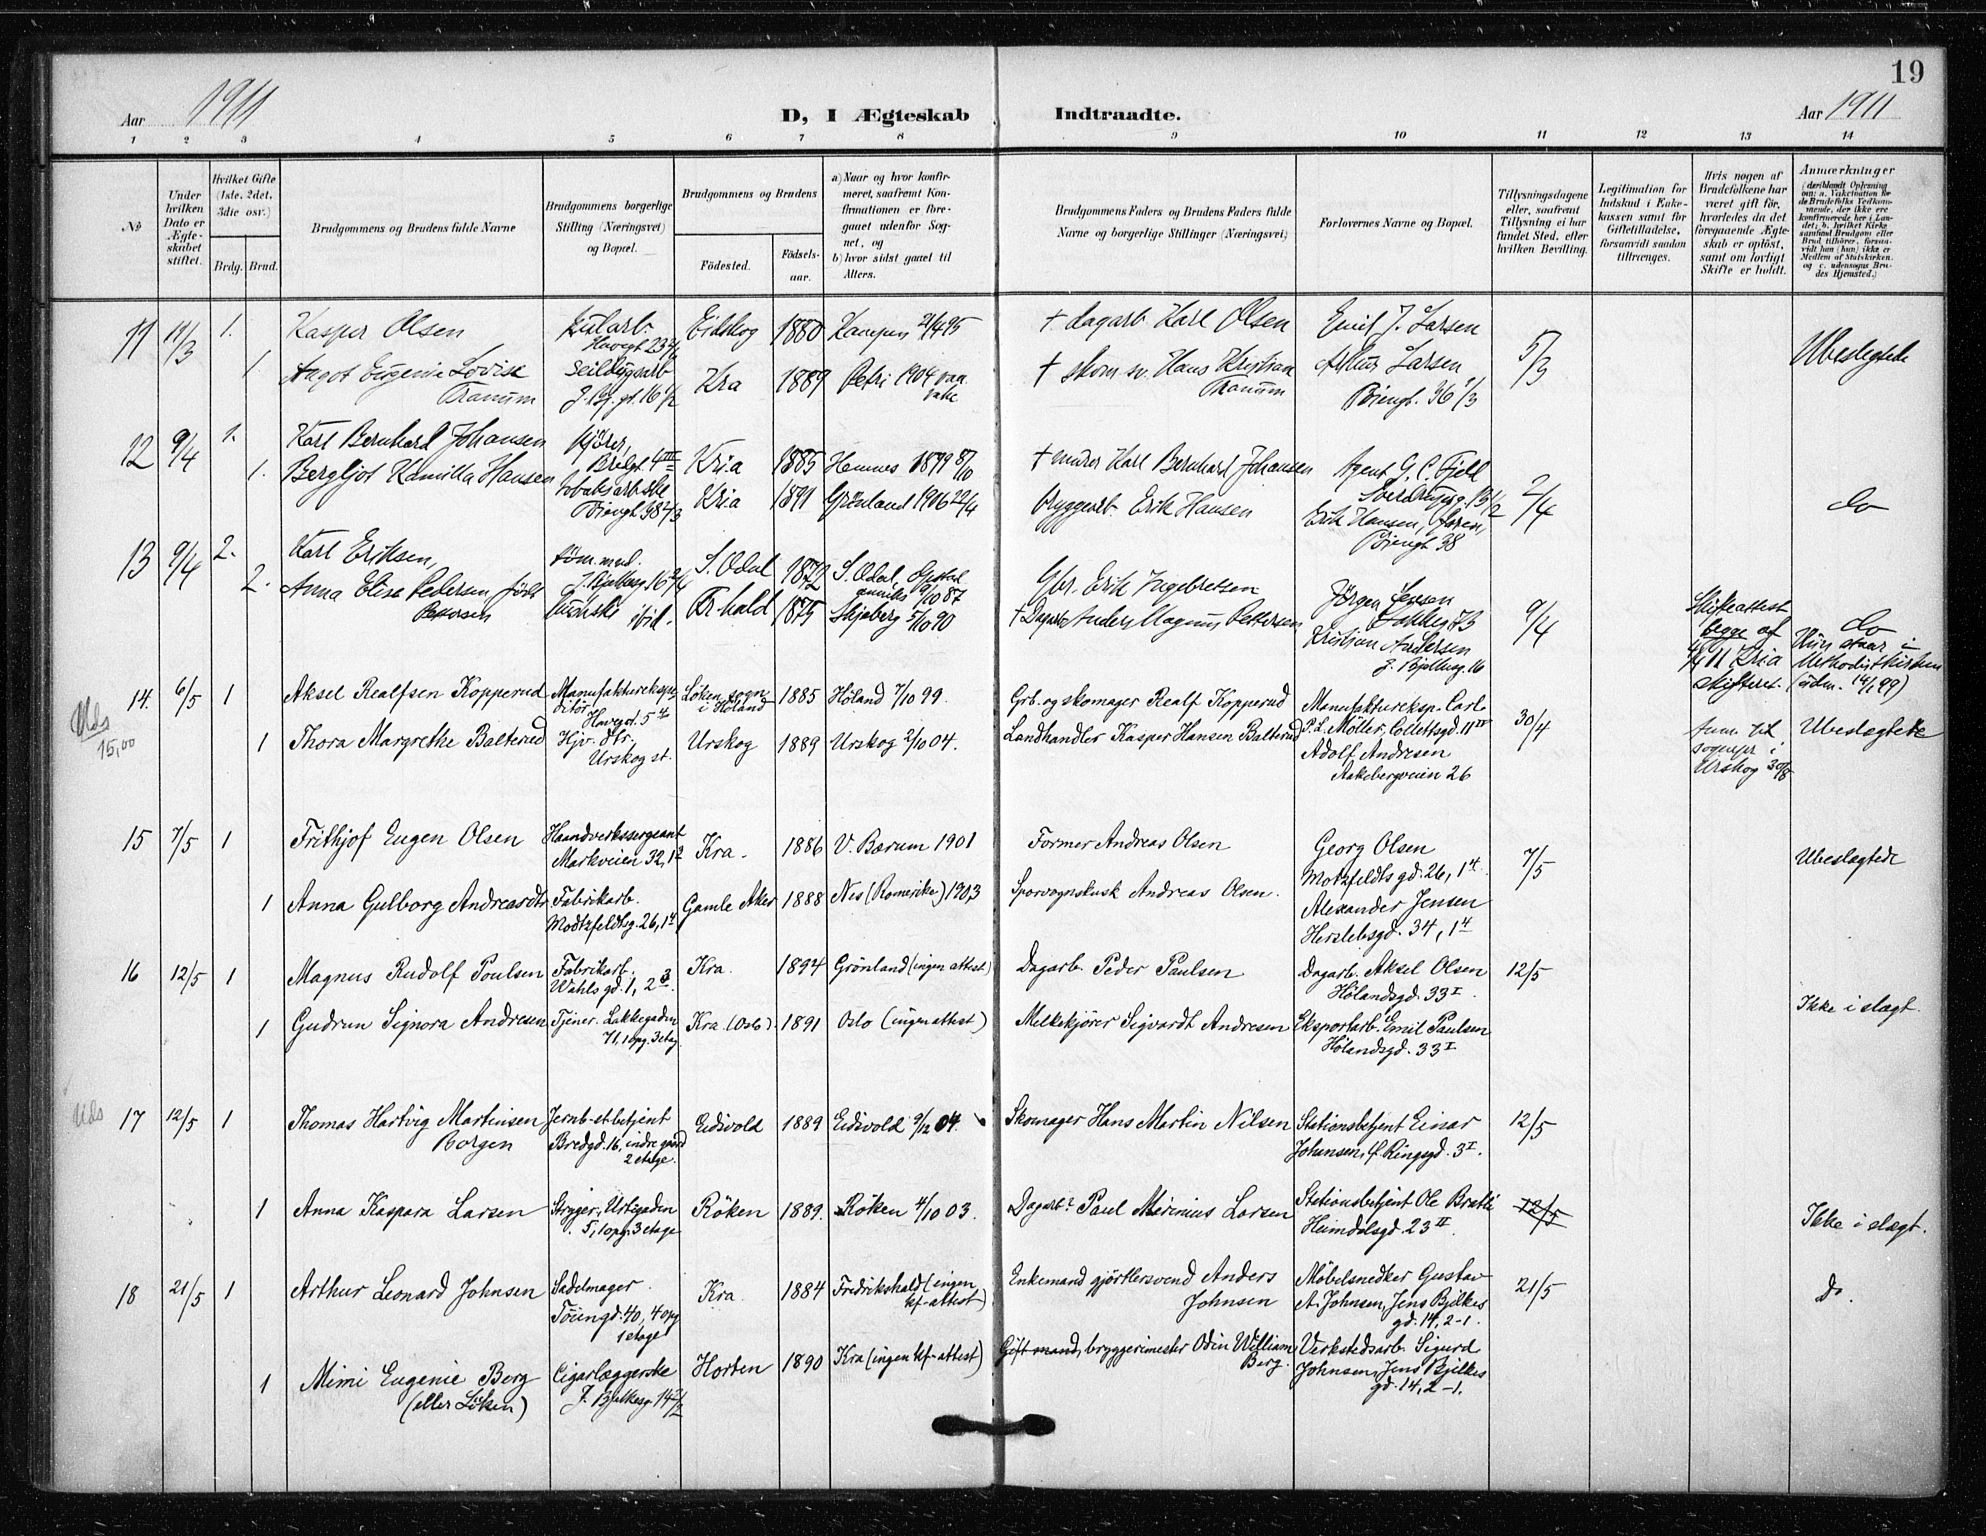 19
Aar 1911
D, I Ægteskab Indtraadte.
Aar 1911
1 2 3 4 5 6 7 8 9 10 11 12 13 14
No
Under hvilken Dato er Ægteskabet stiftet.
Hvilket Gifte (1ste, 2det, 3die osv.)
Brdg. Brud.
Brudgommens og Brudens fulde Navne
Brudgommens borgerlige Stilling (Næringsvei) og Bopæl.
Brudgommens og Brudens
Fødested.
Fødselsaar.
a) Naar og hvor konfirmeret, saafremt Konfirmationen er foregaaet udenfor Sognet, og
b) hvor sidst gaaet til Alters.
Brudgommens Faders og Brudens Faders fulde Navne og borgerlige Stillinger (Næringsvei)
Forlovernes Navne og Bopæl.
Tillysningsdagene eller, saafremt Tillysning ei har fundet Sted, efter hvilken Bevilling.
Legitimation for Indskud i Enkekassen samt for Giftetilladelse, forsaavidt saadan tiltrænges.
Hvis nogen af Brudefolkene har været gift før, hvorledes da det foregaaende Ægteskab er opløst, samt om lovligt Skifte er holdt.
Anmærkninger
11 11/3 1. Kasper Olsen Eidsberg 1880 Kampen 2/4 95 † dagarb Karl Olsen Emil J. Larsen 5/3 Ubeslegtede
1 Aagot Eugenie Lovise Tranum Seildugsarb Kra 1889 Petri 1904 † skom.sv. Hans Kristian Tranum Arthur Larsen
12 9/4 1. Karl Bernhard Johansen Kjører, Kria 1885 Hemnes 1899 8/10 † murer Karl Bernhard Johansen Agent G. C. Fjell 2/4 do
1. Bergljot Kamilla Hansen Kria 1891 Grønland 1906 22/4 Bryggearb. Erik Hansen Erik Hansen, faren,
13 9/4 2. Karl Eriksen, S. Odal 1872 S. Odal, Gbr. Erik Ingebretsen Jørgen Jensen 9/4 Skifteattest begge af
2. Anna Elise Pedersen født Pettersen ibid. Fr.hald 1875 Skjeberg 5/10 90 † Dagarb Anders Magnus Pettersen Kristian Andersen J. Bjelkesg. 16 do Hun staar i Methodistkirken (uden. 14/1 99)
Uds 15,00
14. 6/5 1 Aksel Realfsen Kopperud Manufakturekspeditør Havegd. 5 4 Løken sogn i Høland 1885 Høland 7/10 99. Grb. og skomager Realf Kopperud Manufactureksp. Carl P. L. Møller, Collettsgd. 11 III 30/4
1 Thora Margrethe Balterud Hjv. dtr. Urskog st. Urskog 1889 Urskog 2/10 04. Landhandler Kasper Hansen Balterud Adolf Andresen Aakebergveien 26 Ubeslagtede
15 7/5 1 Frithjof Eugen Olsen Haandverkssergeant Markveien 32, 1 2 Kra. 1886 V. Bærum 1901 Former Andreas Olsen Georg Olsen Motzfeldts gd. 26, 1 4. 7/5 Ubeslagtede
1 Anna Gulborg Andreasdtr Fabrikarb. Modtzfeldtsg. 26, 1 4 Gamle Aker 1888 Nes (Romerike) 1903 Sporvognskusk Andreas Olsen. Alexander Jensen Herslebsgd. 34, 1 4
16 12/5 1 Magnus Rudolf Poulsen Fabrikarb. Wahls gd. 1, 2 3. Kra. 1894 Grønland (ingen attest) Dagarb. Peder Paulsen Dagarb. Aksel Olsen Hølandsgd. 33 I. 12/5
1 Gudrun Signora Andresen Tjener. Lakkegaden 71, 1 opg. 3 etag Kra (Oslo). 1891 Oslo (ingen attest) Melkekjører Sigvardt Andresen Eksportarb. Emil Paulsen Hølandsgd. 33 I Ikke i slegt.
Uds
17 12/5 1 Thomas Hartvig Martinsen Borgen Jernb-stbetjent Bredgd. 16, indre gaard 2 etage. Eidsvold 1889 Eidsvold 9/12 04. Skomager Hans Martin Nilsen Stationsbetjent Einar Johansen, St. Ringsgd. 3 I. 12/5
1 Anna Kaspara Larsen Stryger, Urtegaden 5, 1 opg. 3 etage Røken 1889. Røken 4/10 03. Dagarb. Paul Mirinius Larsen Stationsbetjent Ole Bratli Heimdalsgd. 23 II. 12/5 Ikke i slægt.
18 21/5 1 Arthur Leonard Johnsen Sadelmager. Tøiengd. 40, 4 opg 1 etage Kra. 1884 Fredrikshald (ingen kf-attest) Enkemand gjørtlersvend Anders Johnsen Møbelsnedker Gustav A. Johnsen, Jens Bjelkes gd. 14, 2-1. 21/5 Do.
1 Mimi Eugenie Berg (eller Løken) Cigarlæggerske J. Bjelkesg. 14 2/1 Horten 1890 Kra (ingen kf-attest) Gift mand, bryggerimester Odin William Berg. Verkstedsarb. Sigurd Johnsen, Jens Bjelkes gd. 14, 2-1.